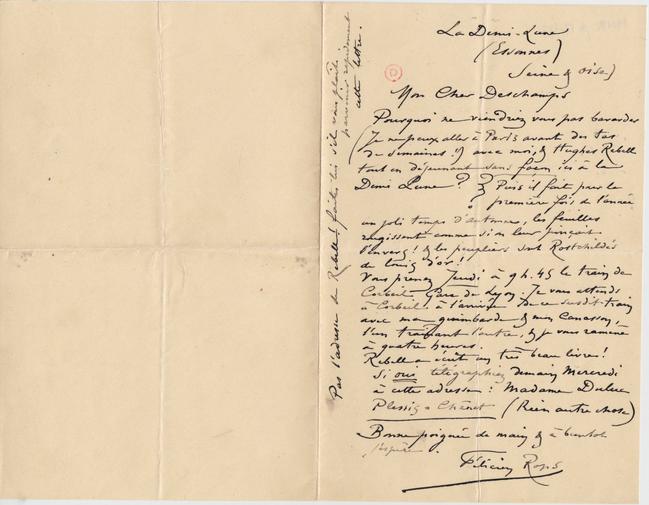 La Demi-Lune
(Essonnes)
Seine & Oise)
Mon Cher Deschamps
Pourquoi ne viendriez vous pas bavarder
(Je ne peux aller à Paris avant des tas
de semaines !) avec moi, & Hughes Rebell
tout en déjeunant sans façon ici à la
Demi Lune ? Puis il fait pour la
première fois de l'année
un joli temps d'automne, les feuilles
rougissent comme si on leur pinçait
l'envers ! & les peupliers sont Rostchildés
de louis d'or !
Vous prenez Jeudi à 9h.45 le train de
Corbeil, Gare de Lyon. Je vous attends
à Corbeil à l'arrivée de ce susdit train
avec ma guimbarde & mon Canasson,
l'un traînant l'autre, & je vous ramène
à quatre heures.
Rebell a écrit un très beau livre !
Si oui télégraphiez demain Mercredi
à cette adresse : Madame Duluc
Plessis-Chênet (Rien autre chose)
Bonne poignée de main & à bientôt
j'espère.
Félicien Rops
Pas l'adresse de Rebell ! faites lui s'il vous plaît
parvenir rapidement
cette lettre.